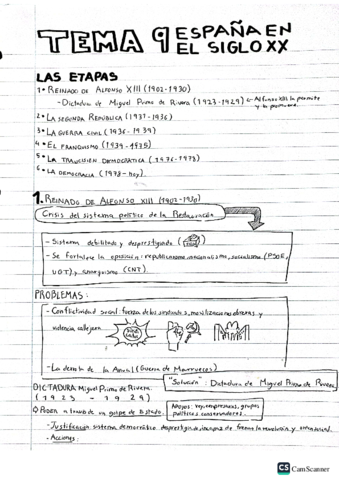 TEMA 9 ESPAÑA EN
EL SIGLO XX
LAS ETAPAS
1• REINADO DE ALFONSO XIII (1902-1930)
- Dictadura de Miguel Primo de Rivera (1923-1929) ← Alfonso XIII lo permite
y lo promueve.
2• LA SEGUNDA REPÚBLICA (1931-1936)
3• LA GUERRA CIVIL (1936-1939)
4• EL FRANQUISMO (1939-1975)
5• LA TRANSICIÓN DEMOCRÁTICA (1976-1978)
6• LA DEMOCRACIA (1978-hoy).
1. REINADO DE ALFONSO XIII (1902-1930)
Crisis del sistema político de la Restauración
- Sistema debilitado y desprestigiado
- Se fortalece la oposición: republicanismo, nacionalismo, socialismo (PSOE,
UGT) y anarquismo (CNT)
PROBLEMAS:
- Conflictividad social: fuerza de los sindicatos, movilizaciones obreras y
violencia callejera
- La derrota de la Annual (Guerra de Marruecos)
"Solución": Dictadura de Miguel Primo de Rivera
DICTADURA Miguel Primo de Rivera.
(1923 - 1929)
Poder a través de un golpe de Estado.
Apoyos: rey, empresarios, grupos
políticos conservadores.
- Justificación: sistema democrático desprestigiado incapaz de frenar la revolución y
- Acciones:
CS CamScanner